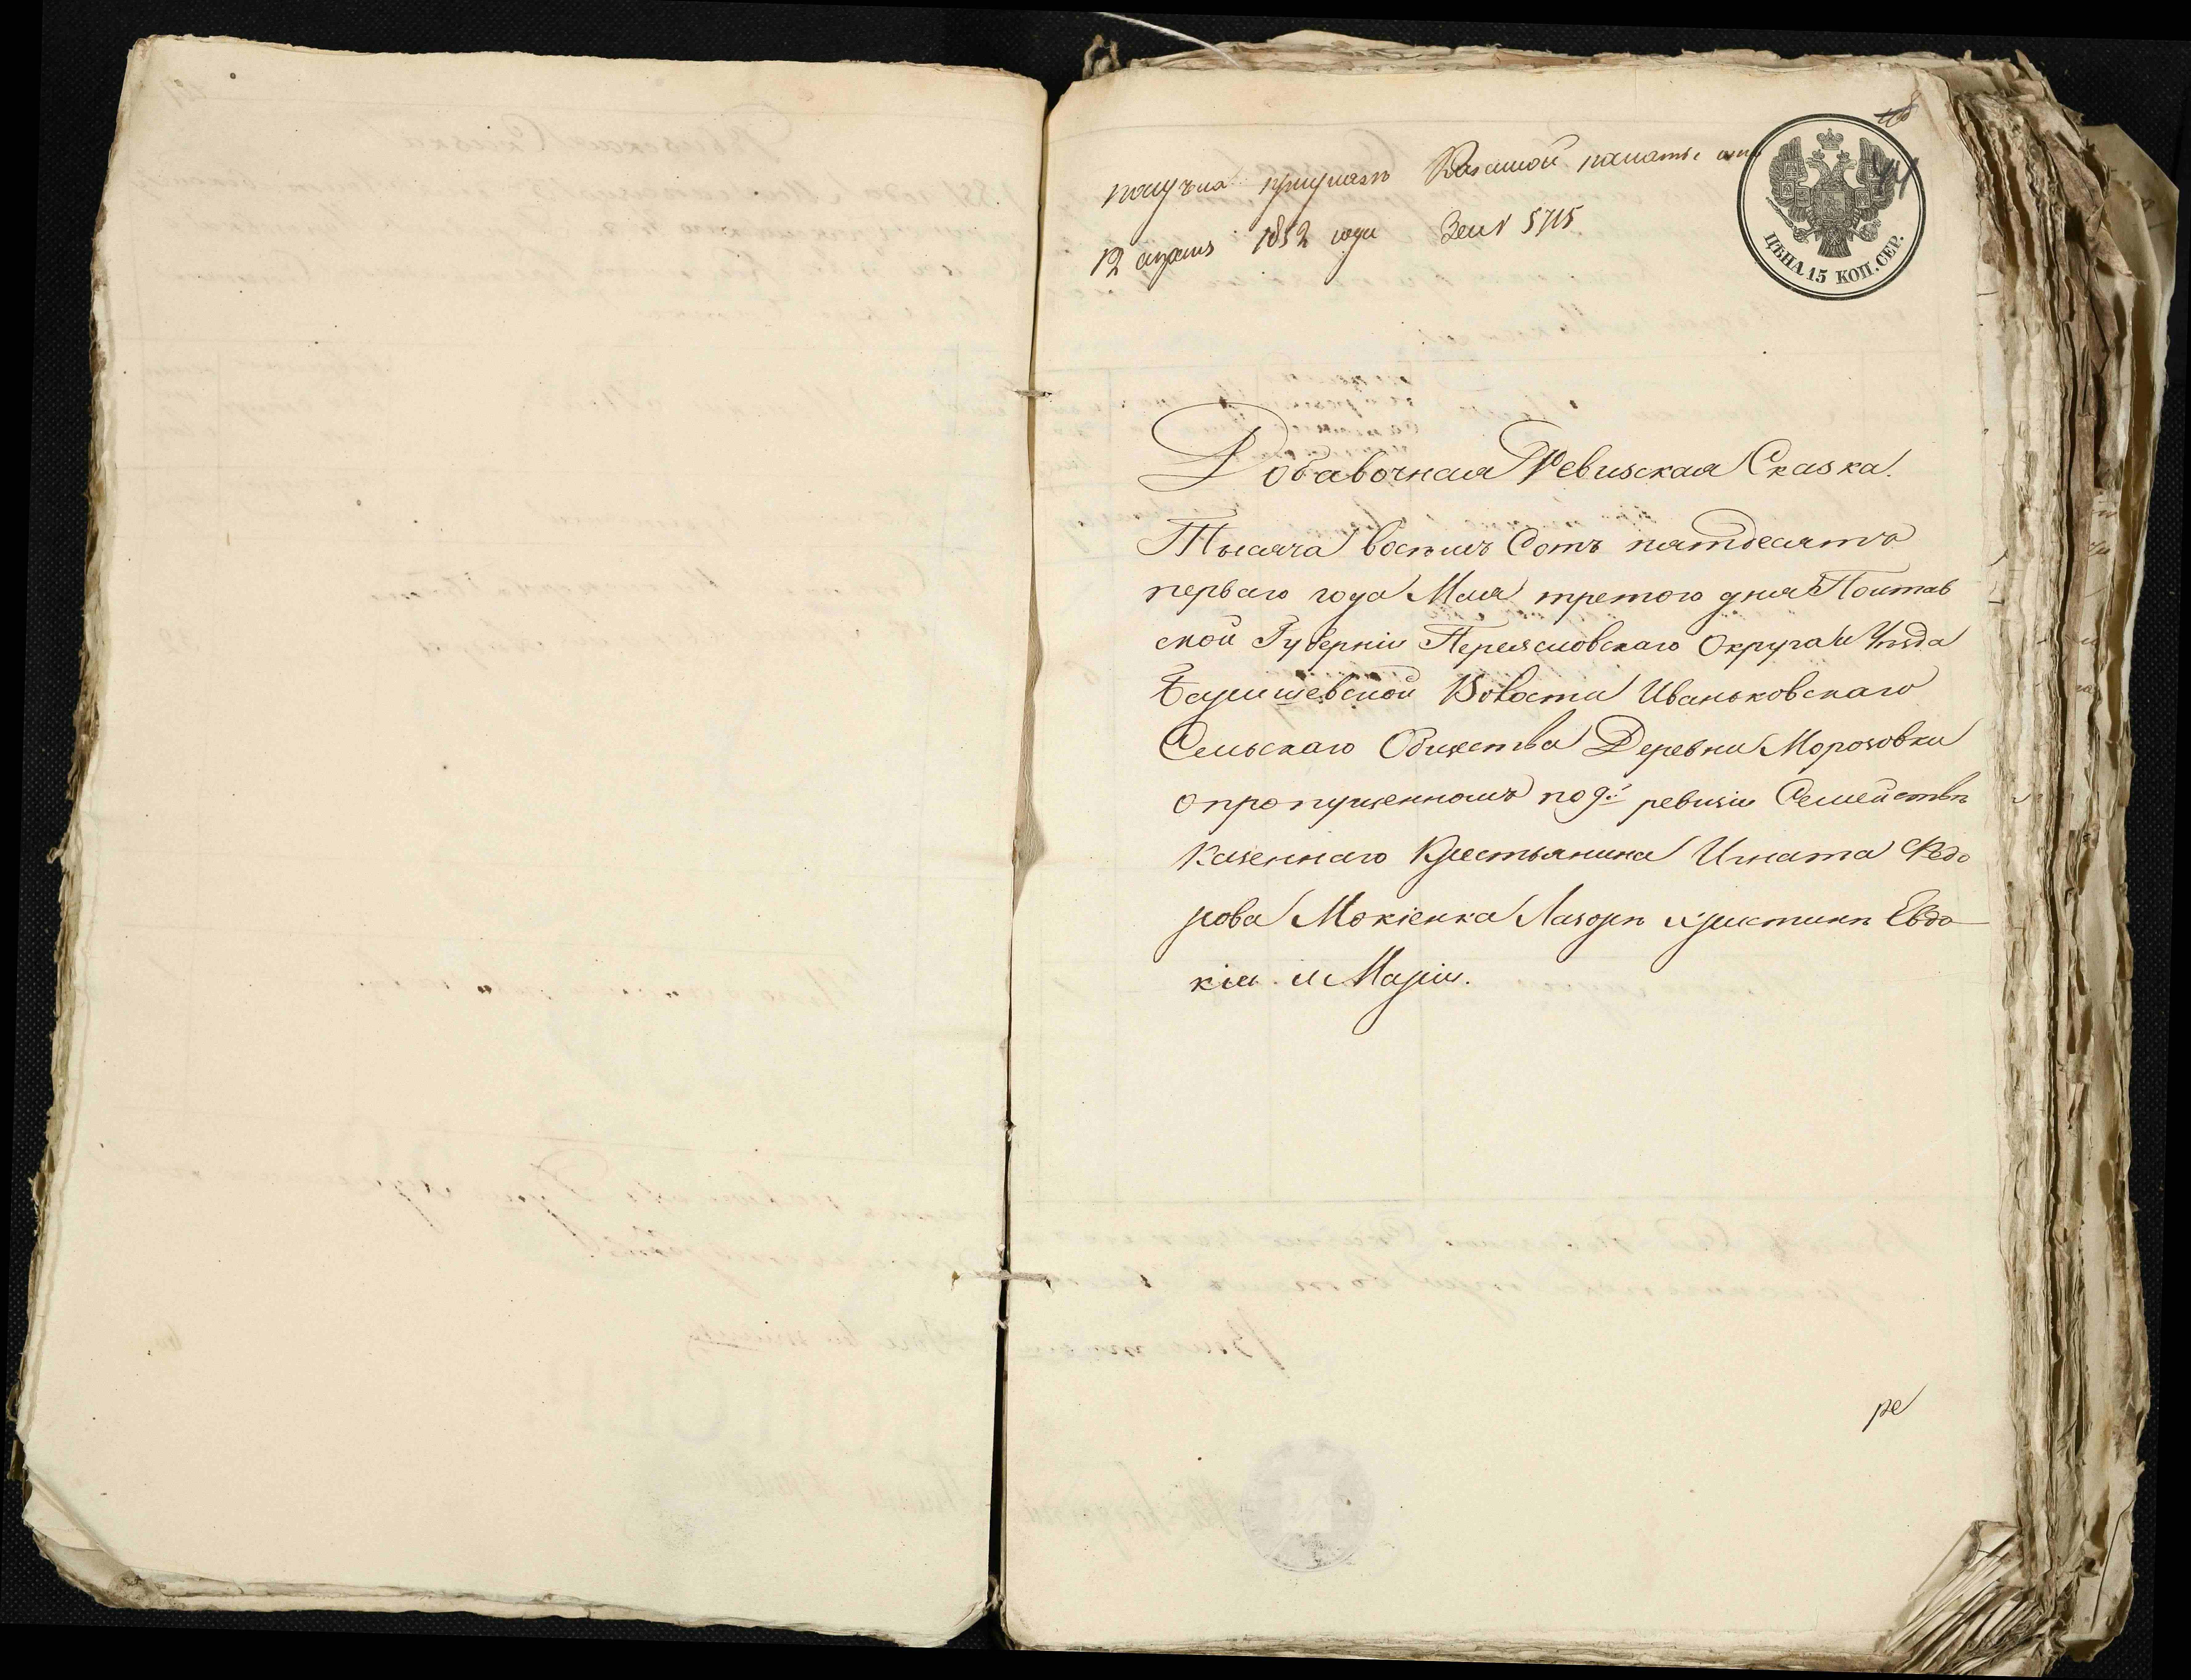 получена приуказе Казенной палаты отъ
12 апреля 1852 года За № 5715
44
ЦѢНА 15 КОП. СЕР.
Добавочная Ревизская Сказка.
Тысяча восемь Сотъ пятдесятъ
перваго года Мая третого дня Полтав
ской Губерніи Переясловскаго Округа и Уѣзда
Барышевской Волости Иваньковскаго
Сельскаго Общества Деревни Морозовки
опропущенномъ по 9й ревизіи Семействѣ
Казеннаго Крестьянина Игната Федо
рова Мокіенка Лазорѣ Христинѣ Евдо
кіи и Маріи.
ре